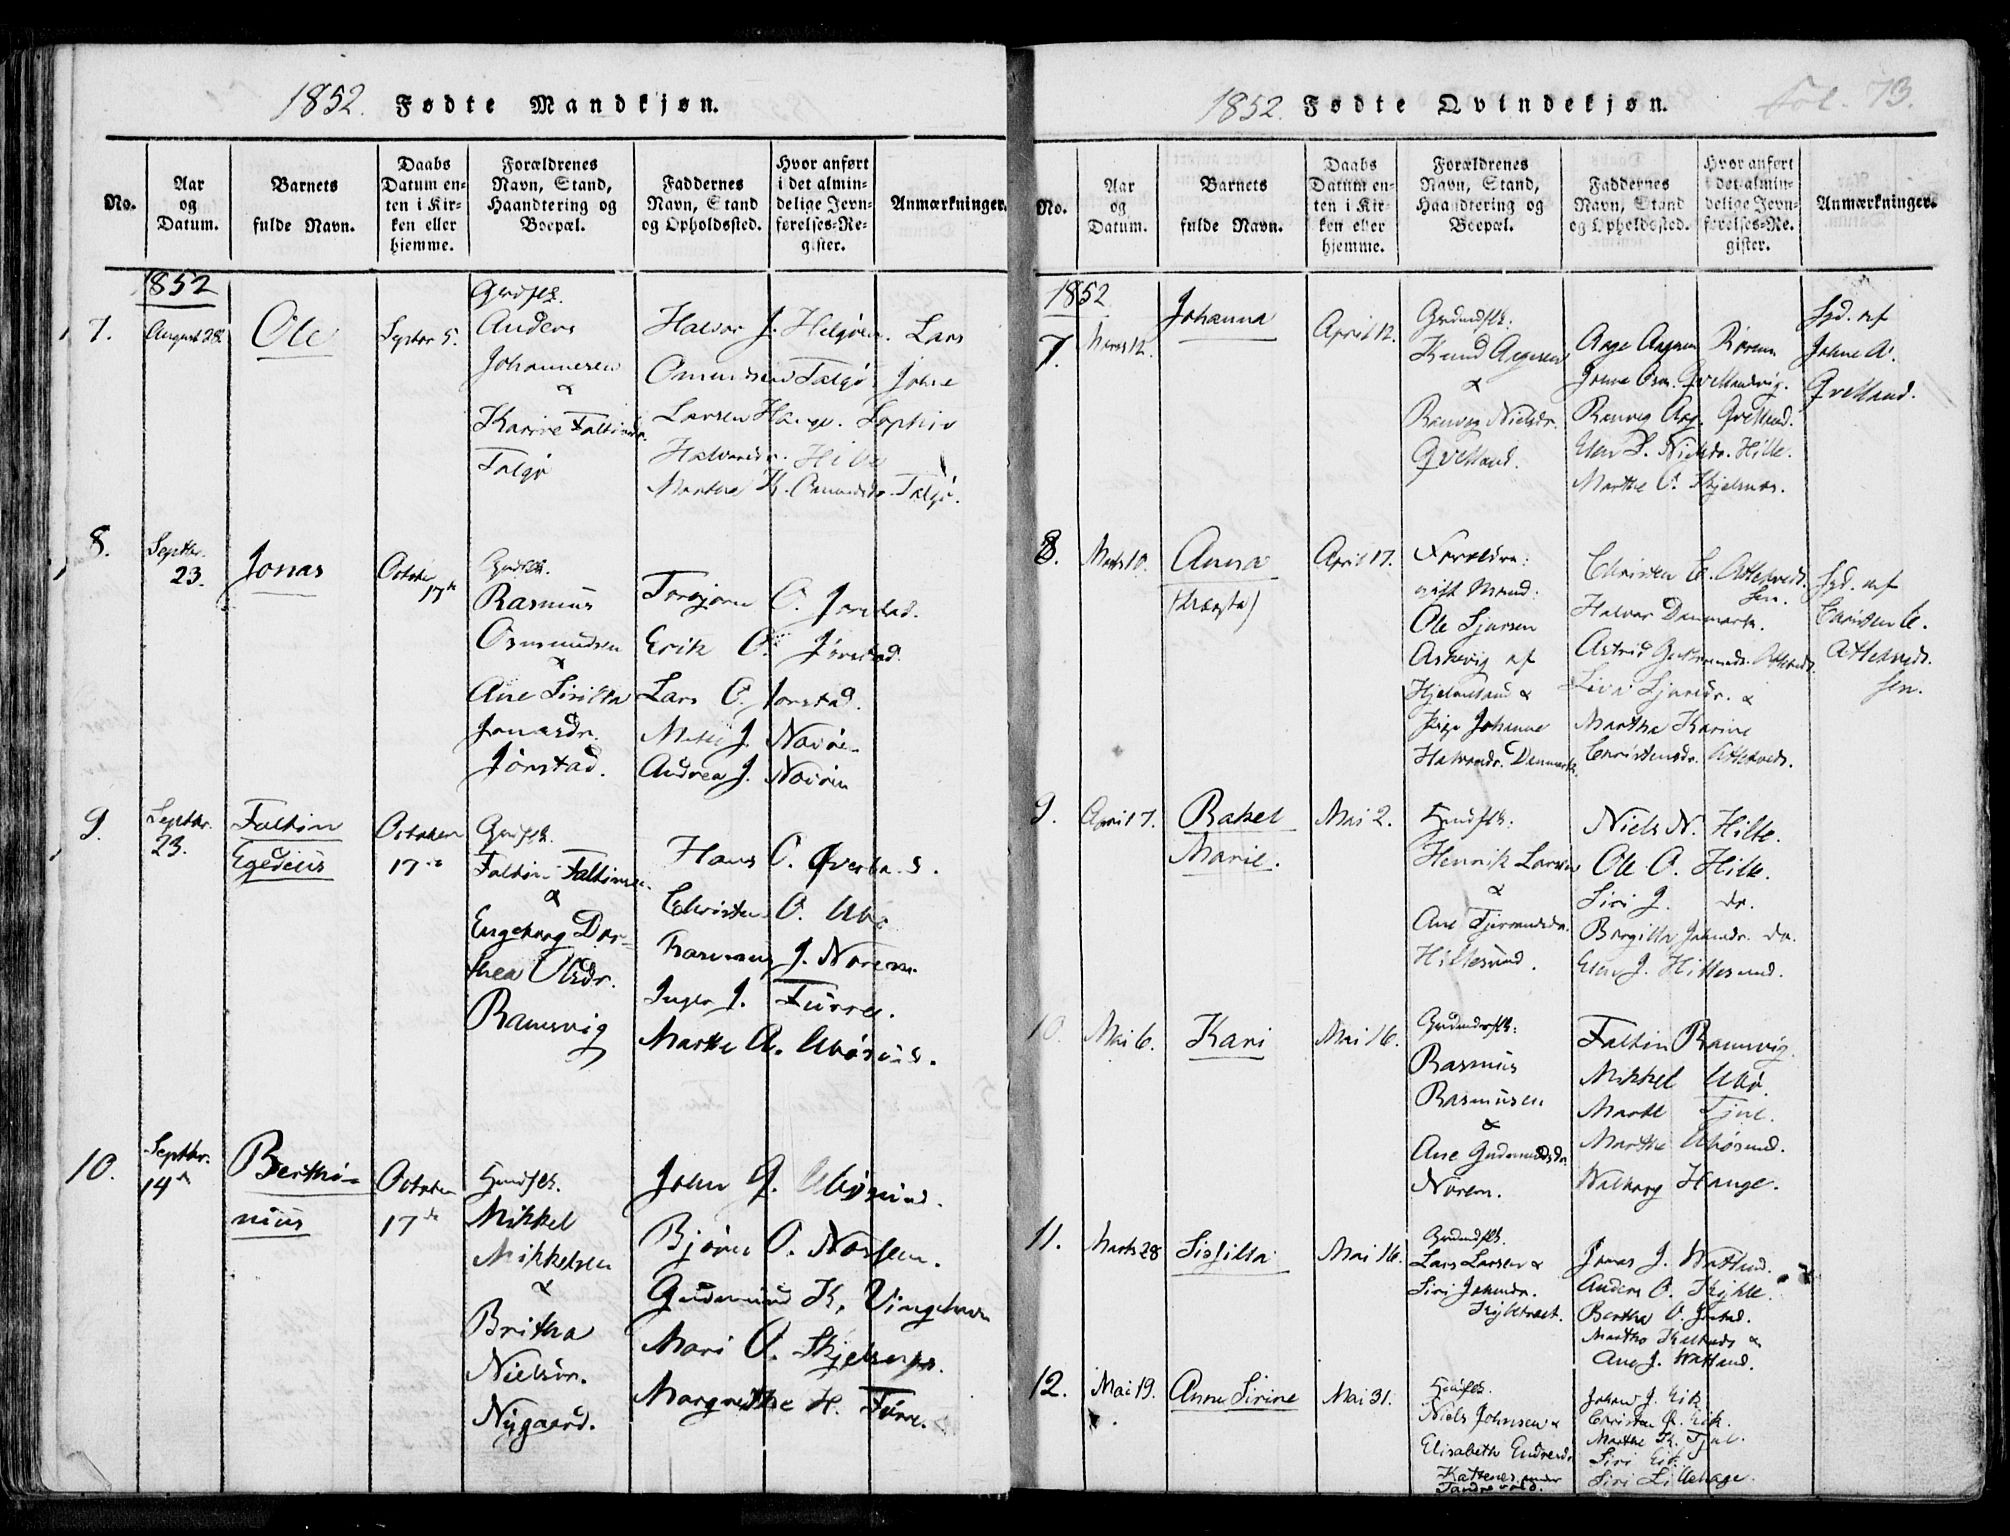 1852. Fødte Mandkjøn.
No.
Aar
og
Datum.
Barnets
fulde Navn.
Daabs
Datum en-
ten i Kir-
ken eller
hjemme.
Forældrenes
Navn, Stand,
Haandtering og
Boepæl.
Faddernes
Navn, Stand
og Opholdssted.
Hvor anført
i det almin-
delige Jevn-
førelses-Re-
gister.
Anmærkninger.
1852
7.
August 28.
Ole
Septbr 5.
Anders
Johannesen
&
Karine Faltinsdr.
Talgø
Halvor J. Helgøen. Lars
Omundsen Talgø. Johne
Larsen Hauge. Sophie
Halvorsdr. Hille
Marthe K. Omundsdr. Talgø.
8.
Septbr.
23.
Jonas
October
17de
Rasmus
Osmundsen
&
Ane Sirilla
Jonasdr.
Jørstad.
Torbjørn O. Jørstad.
Erik O. Jørstad.
Lars O. Jørstad.
Mette J. Norøen
Andrea J. Norøen
9.
Septbr.
23.
Faltin
Egedeus
October
17de
Faltin Faltinsen
&
Engeborg Dor-
thea Olsdr.
Ramsvig
Hans O.
Christen O. Ubø
Rasmus J. Norem.
Inger J. Furre.
Marthe A. Ubøsund.
10.
Septbr.
14de
Berthi-
nius
October
17de
Huusflk.
Mikkel
Mikkelsen
&
Britha
Nielsdr.
Nygaard.
John G. Ubøsund.
Bjørn O.
Gudmund K.
Mari O. Skjelnæs.
Margrethe H. Furre.
1852. Fødte Qvindekjøn.
Fol. 73.
No.
Aar
og
Datum.
Barnets
fulde Navn.
Daabs
Datum en-
ten i Kir-
ken eller
hjemme.
Forældrenes
Navn, Stand,
Haandtering og
Boepæl.
Faddernes
Navn, Stand
og Opholdssted.
Hvor anført
i det almin-
delige Jevn-
førelses-Re-
gister.
Anmærkninger.
1852
7.
Marts 12.
Johanna
April 12.
Knud Aagesen
&
Ranveg Nielsdr.
Qvelland.
Aage Aagesen
Johne Osm. Qvellandvig.
Ranveg Aag. Qvelland.
Elen S. Nielsdr. Hille.
Marthe O. Skjelnæs.
af
Johne A.
Qvelland.
8.
Marts 10.
Anna
(Uægte)
April 17.
Forældre:
gift Mand:
Ole Sjursen
Askevig af
Hjelmeland &
Pige Johanne
Halvorsdr. Danmark.
Christen C.
Sen.
Halvor Danmark.
Astrid
Siva Sjursdr. &
Marthe Karine
Christensdr.
af
Christen C.
Sen.
9.
April 7.
Rakel
Marie.
Mai 2.
Huusflk:
Henrik Larsen
&
Ane
Hillesund.
Niels N. Hille.
Ole O. Hille.
Siri J. do.
Borgilla Johnsdr. do.
Elen J. Hillesund.
10.
Mai 6.
Kari
Mai 16.
Rasmus
Rasmusen
&
Ane Gudmundsdr.
Norem.
Faltin Ramsvig.
Mikkel Ubø.
Marthe
Marthe Ubøsund.
Walborg Hauge.
11.
Marts 28
Sissilla
Mai 16.
Lars Larsen &
Siri Johnsdr.
Jonas J. Watland.
Anders O. Kyhle.
Bertha O.
Martha
Ane J. Watland.
12.
Mai 19.
Anne Sirine
Mai 31.
Huusflk.
Niels Johnsen &
Elisabeth Endresdr.
Kattenes under
Johan J. Eik
Christen Eik.
Marthe K.
Siri Eik
Siri Lillehage.